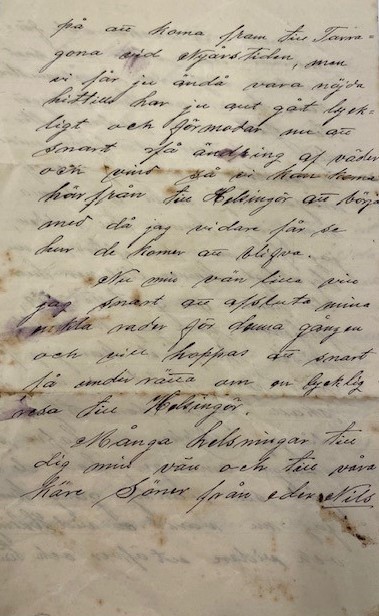 på att koma fram till Tarra=
gona vid Nyårstiden, men
vi får ju ändå vara nöjda
hittills har ju allt gåt lyck-
ligt och förmodar nu att
snart få ändring af väder
och vind så vi kan koma
härfrån till Helsingör att börja
med då jag vidare får se
hur de komer att blifva.
Nu min vän lilla vill
jag snart att afsluta mina
enkla rader för denna gången
och vill hoppas att snart
få underrätta om en lycklig
resa till Helsingör.
Många helsningar till
dig min vän och till våra
käre Söner från eder Nils